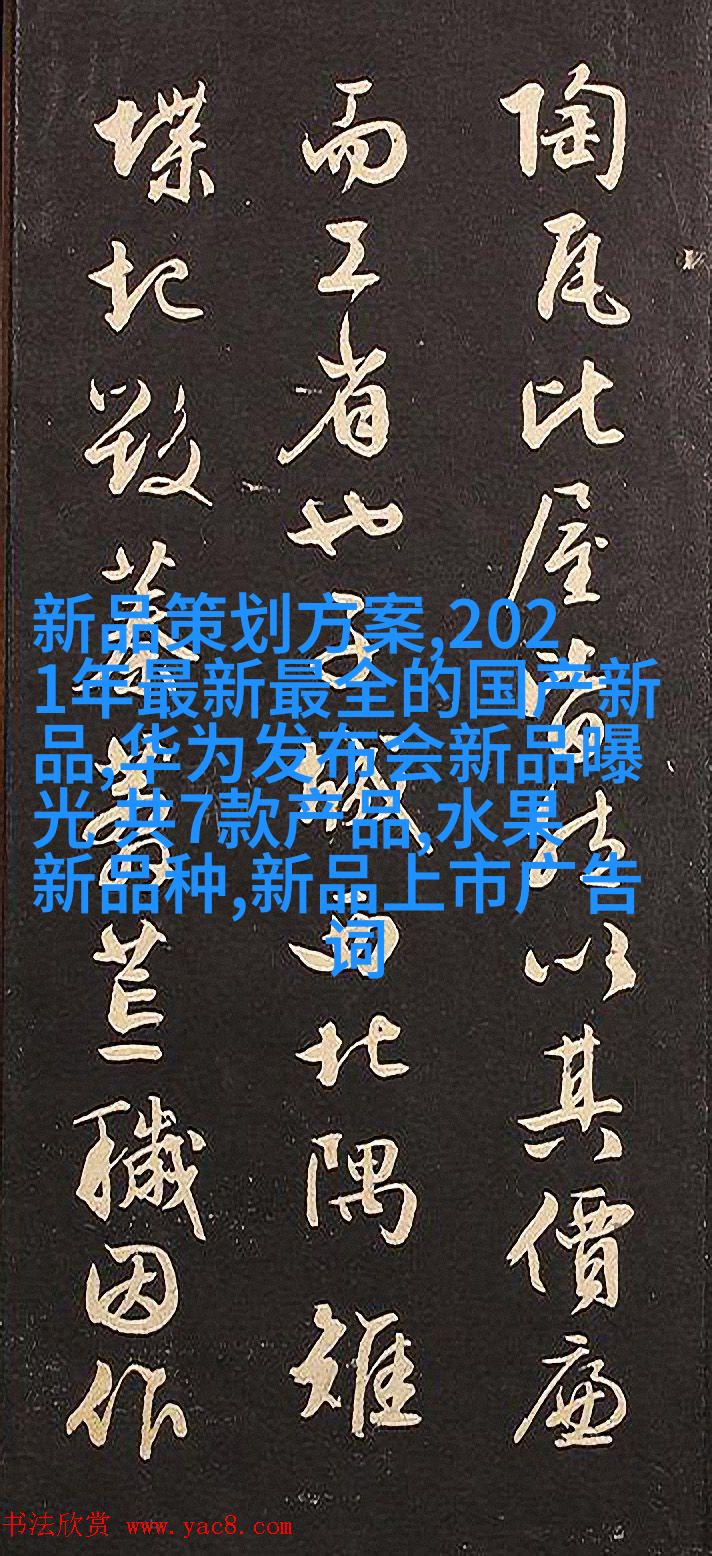 陶瓦比屋皆然以其價廉
而工省也子城西北隅雉
堞圮毀蓁莽荒穢因作
新品策划方案,202
1年最新最全的国产新
品,华为发布会新品曝
光 共7款产品,水果
新品种,新品上市广告
词
书法欣赏 www.yac8.com